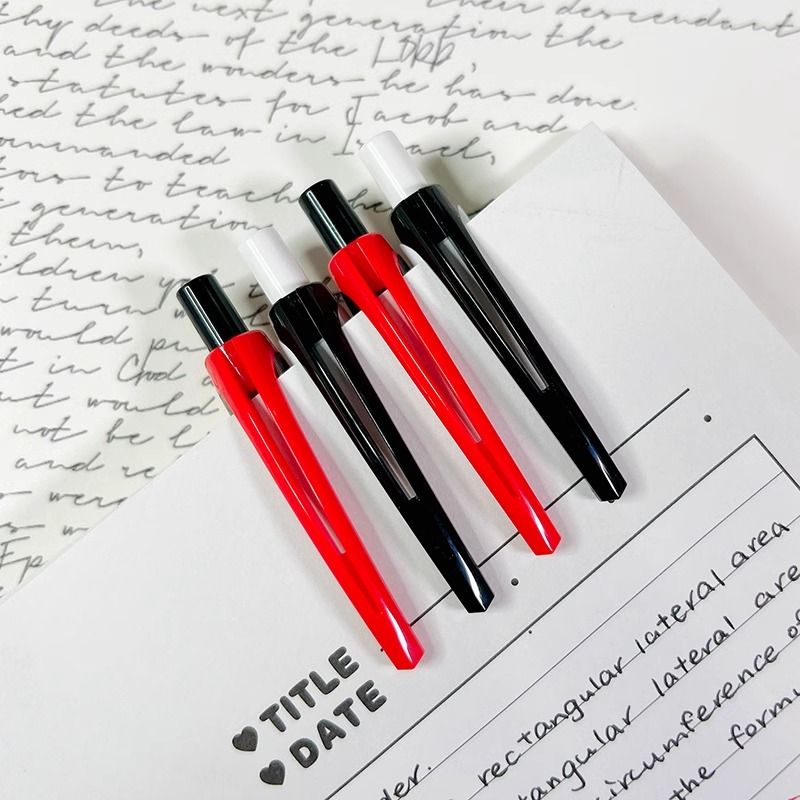 the next generation their descendant
thy deeds of the LORD,
and the wonders he has done.
statutes for Jacob and
hed the law in Israel,
ommanded
tors to teach
generation
them,
ildren
turn
would
t in God
ut would
not be
and
were
Ep
TITLE
DATE
rectangular lateral area
tangular lateral are
circumference of
the formu
der.